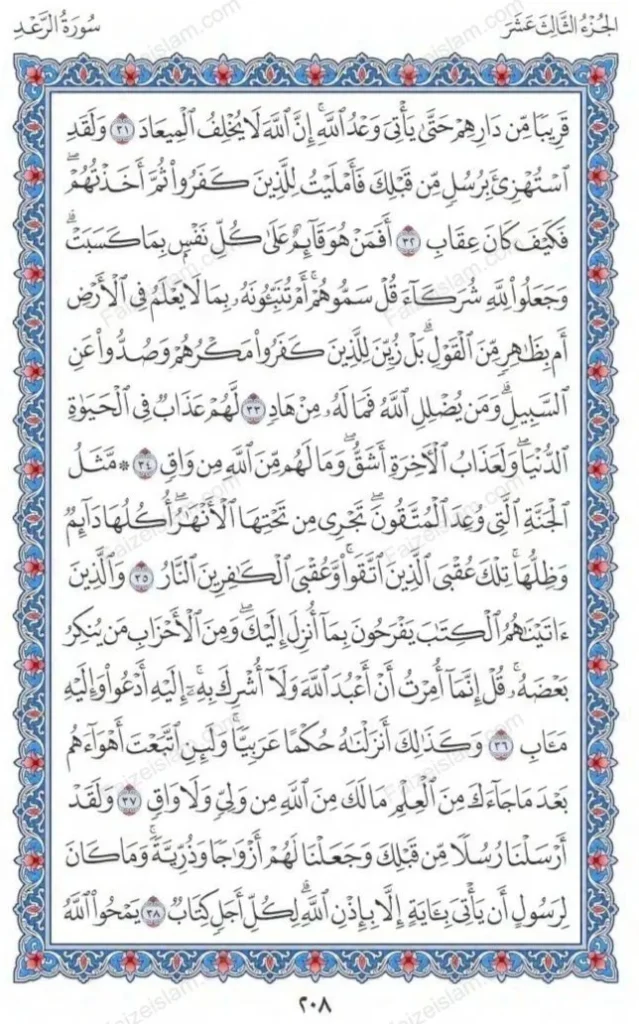 الجُزْءُ الثَّالِثَ عَشَرَ
سُورَةُ الرَّعْدِ
قَرِيبًا مِّن دَارِهِمْ حَتَّىٰ يَأْتِيَ وَعْدُ ٱللَّهِۚ إِنَّ ٱللَّهَ لَا يُخْلِفُ ٱلْمِيعَادَ ٣١ وَلَقَدِ
ٱسْتُهْزِئَ بِرُسُلٍ مِّن قَبْلِكَ فَأَمْلَيْتُ لِلَّذِينَ كَفَرُوا۟ ثُمَّ أَخَذْتُهُمْۖ
فَكَيْفَ كَانَ عِقَابِ ٣٢ أَفَمَنْ هُوَ قَآئِمٌ عَلَىٰ كُلِّ نَفْسٍۭ بِمَا كَسَبَتْۗ
وَجَعَلُوا۟ لِلَّهِ شُرَكَآءَ قُلْ سَمُّوهُمْۚ أَمْ تُنَبِّـُٔونَهُۥ بِمَا لَا يَعْلَمُ فِى ٱلْأَرْضِ
أَم بِظَـٰهِرٍ مِّنَ ٱلْقَوْلِۗ بَلْ زُيِّنَ لِلَّذِينَ كَفَرُوا۟ مَكْرُهُمْ وَصُدُّوا۟ عَنِ
ٱلسَّبِيلِۗ وَمَن يُضْلِلِ ٱللَّهُ فَمَا لَهُۥ مِنْ هَادٍ ٣٣ لَّهُمْ عَذَابٌ فِى ٱلْحَيَوٰةِ
ٱلدُّنْيَاۖ وَلَعَذَابُ ٱلْـَٔاخِرَةِ أَشَقُّۖ وَمَا لَهُم مِّنَ ٱللَّهِ مِن وَاقٍ ٣٤ * مَّثَلُ
ٱلْجَنَّةِ ٱلَّتِى وُعِدَ ٱلْمُتَّقُونَۖ تَجْرِى مِن تَحْتِهَا ٱلْأَنْهَـٰرُۖ أُكُلُهَا دَآئِمٌ
وَظِلُّهَاۚ تِلْكَ عُقْبَى ٱلَّذِينَ ٱتَّقَوا۟ۖ وَّعُقْبَى ٱلْكَـٰفِرِينَ ٱلنَّارُ ٣٥ وَٱلَّذِينَ
ءَاتَيْنَـٰهُمُ ٱلْكِتَـٰبَ يَفْرَحُونَ بِمَآ أُنزِلَ إِلَيْكَۖ وَمِنَ ٱلْأَحْزَابِ مَن يُنكِرُ
بَعْضَهُۥۚ قُلْ إِنَّمَآ أُمِرْتُ أَنْ أَعْبُدَ ٱللَّهَ وَلَآ أُشْرِكَ بِهِۦٓۚ إِلَيْهِ أَدْعُوا۟ وَإِلَيْهِ
مَـَٔابِ ٣٦ وَكَذَٰلِكَ أَنزَلْنَـٰهُ حُكْمًا عَرَبِيًّاۚ وَلَئِنِ ٱتَّبَعْتَ أَهْوَآءَهُم
بَعْدَ مَا جَآءَكَ مِنَ ٱلْعِلْمِ مَا لَكَ مِنَ ٱللَّهِ مِن وَلِىٍّ وَلَا وَاقٍ ٣٧ وَلَقَدْ
أَرْسَلْنَا رُسُلًا مِّن قَبْلِكَ وَجَعَلْنَا لَهُمْ أَزْوَٰجًا وَذُرِّيَّةًۚ وَمَا كَانَ
لِرَسُولٍ أَن يَأْتِىَ بِـَٔايَةٍ إِلَّا بِإِذْنِ ٱللَّهِۗ لِكُلِّ أَجَلٍ كِتَابٌ ٣٨ يَمْحُوا۟ ٱللَّهُ
٢٠٨
Faizeislam.com